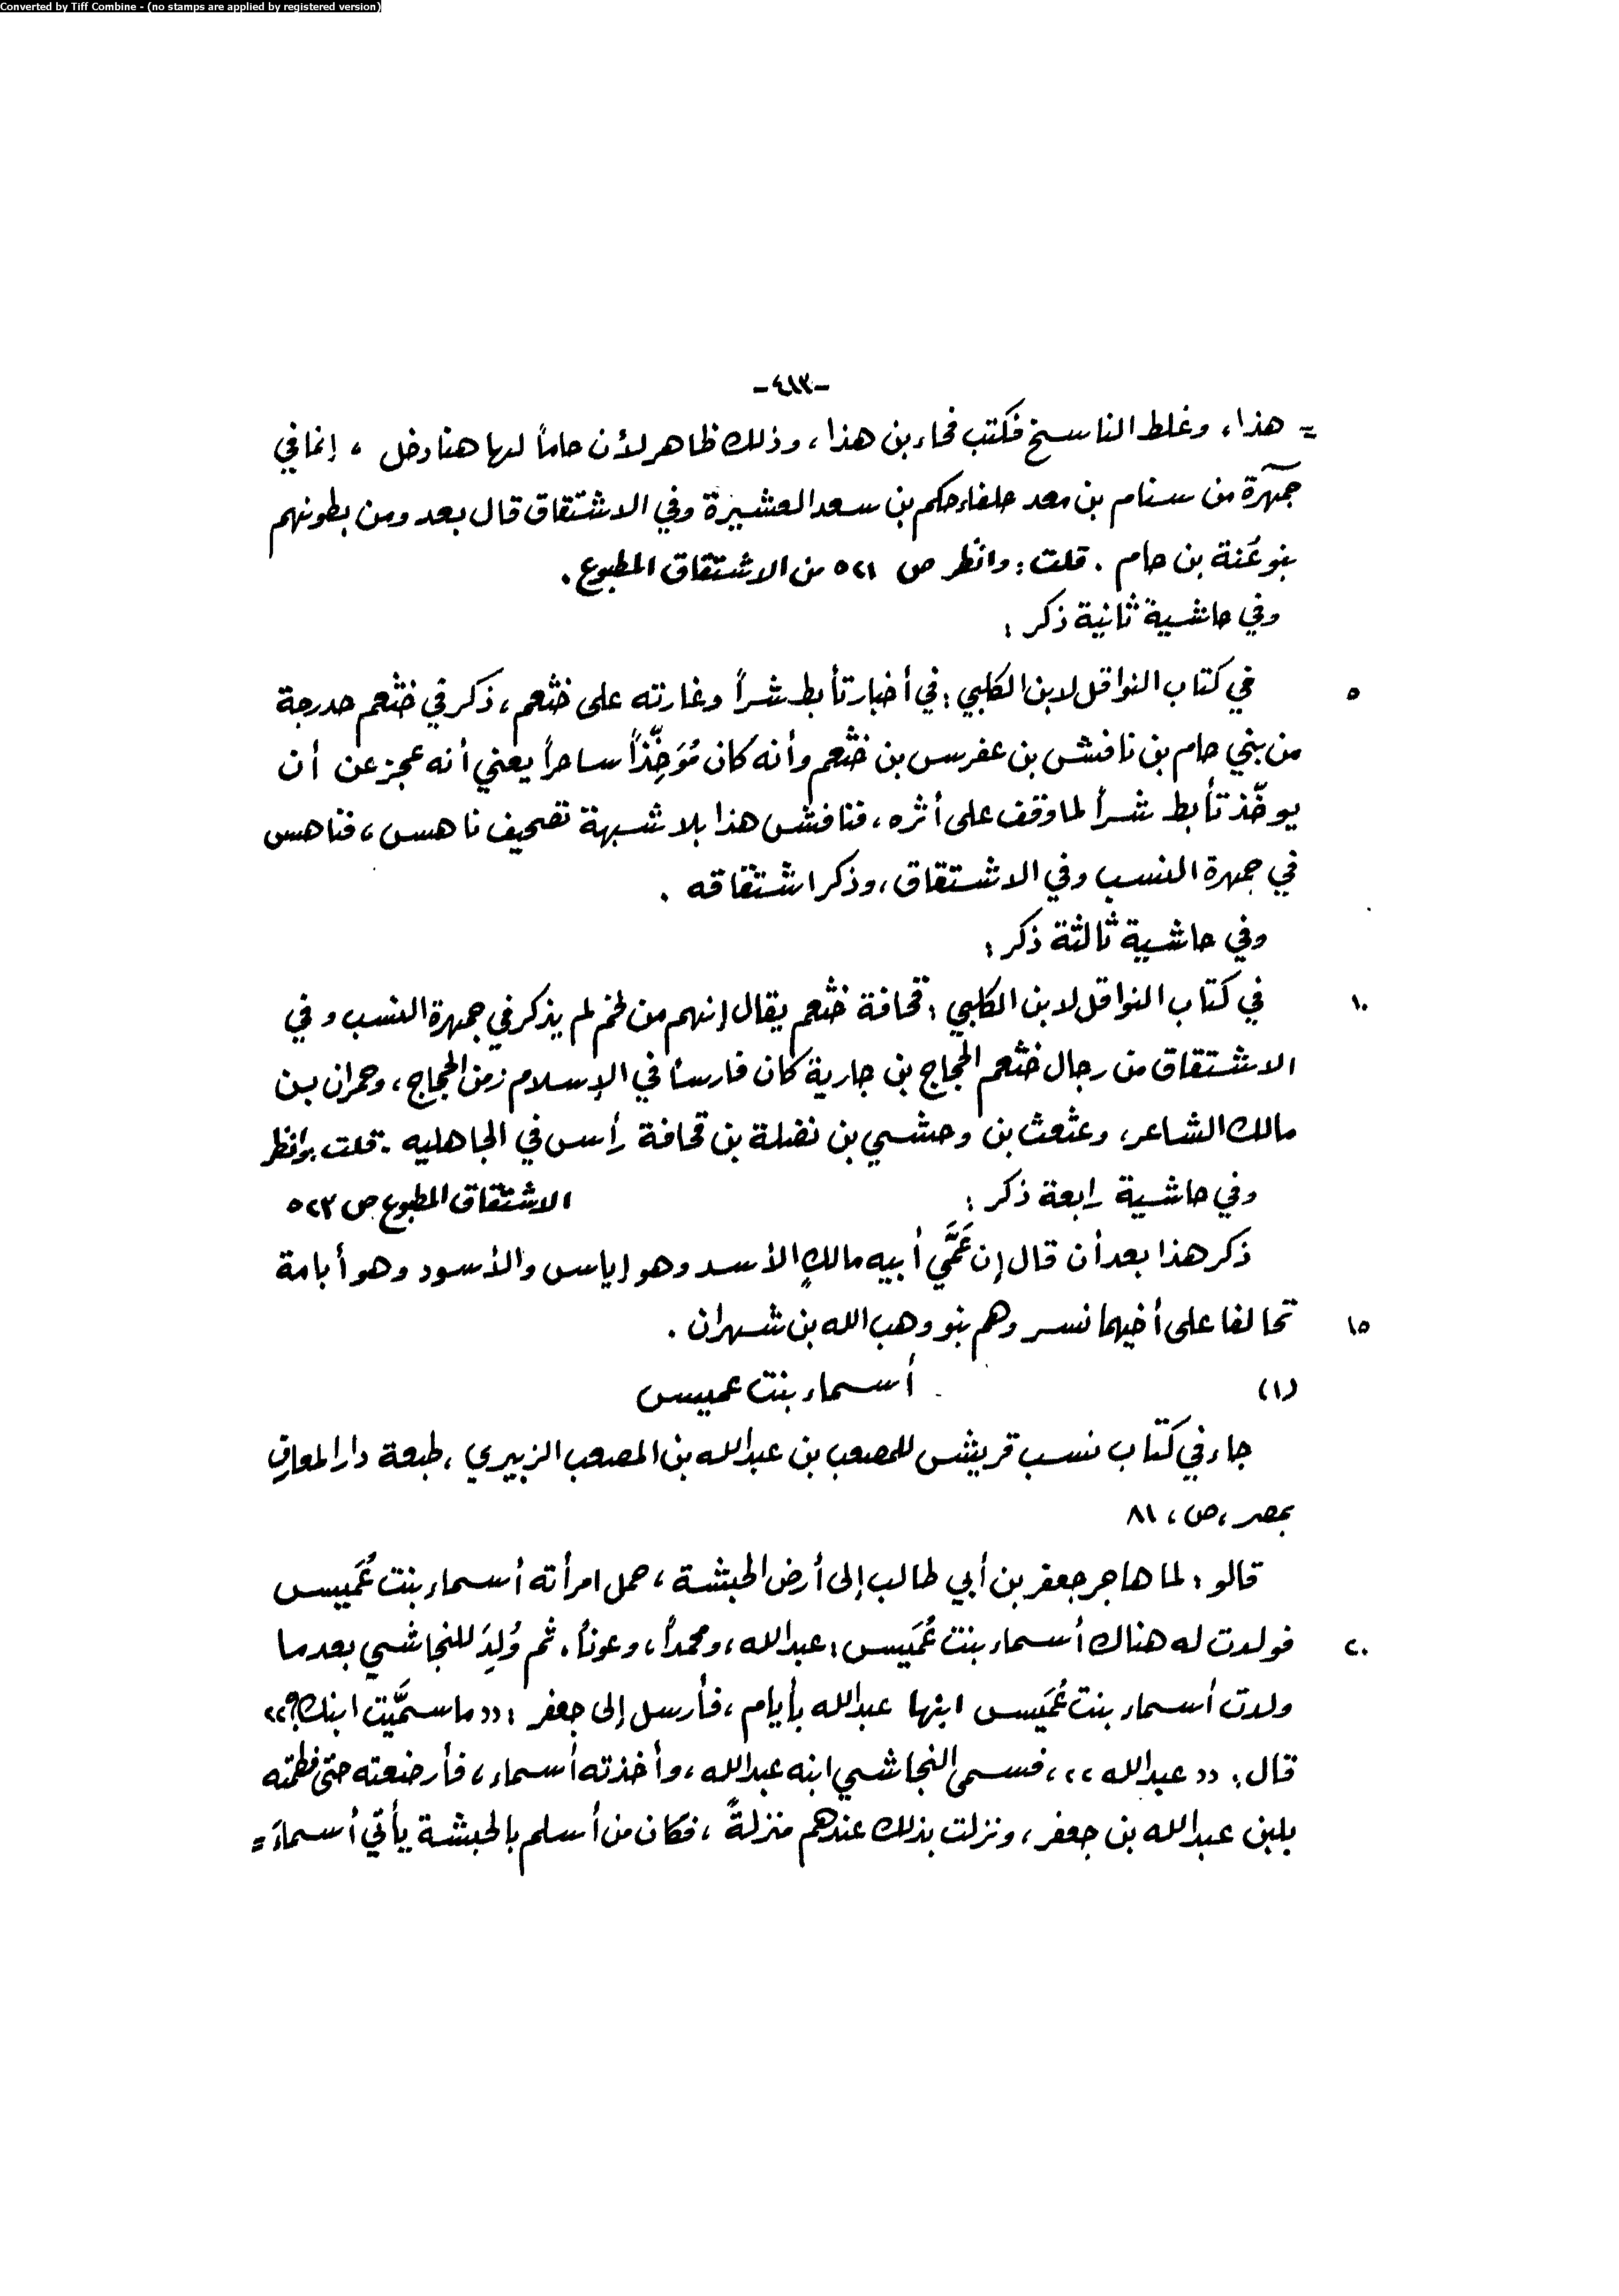 Converted by Tiff Combine - (no stamps are applied by registered version)
-٤١٣-
= هذا، وغلط الناسخ فكتب فجاء بن هذا، وذلك ظاهر لأن حاماً لها هنا دخل ، إنما في
جمهرة من سنام بن معد حلفاء حكم بن سعد العشيرة وفي الاشتقاق قال بعد ومن بطونهم
بنو عَنة بن حام . قلت : وانظر ص ٥٢١ من الاشتقاق المطبوع .
وفي حاشية ثانية ذكر :
٥ في كتاب النواقل لابن الكلبي : في أخبار تأبط شراً وغارته على خثعم ، ذكر في خثعم حدرجة
من بني حام بن نافش بن عفرس بن خثعم وأنه كان مُؤَخِّذاً ساحراً يعني أنه عجز عن أن
يوخّذ تأبط شراً لما وقف على أثره ، فنافش هذا بلا شبهة تصحيف ناهس ، فناهس
في جمهرة النسب وفي الاشتقاق ، وذكر اشتقاقه .
وفي حاشية ثالثة ذكر :
١٠ في كتاب النواقل لابن الكلبي : قحافة خثعم يقال إنهم من لخم لم يذكر في جمهرة النسب وفي
الاشتقاق من رجال خثعم الحجاج بن جارية كان فارساً في الإسلام زمن الحجاج ، وحمران بن
مالك الشاعر ، وعثعث بن وحشي بن نضلة بن قحافة رأس في الجاهليه . قلت : وانظر
الاشتقاق المطبوع ص ٥٢٣
وفي حاشية رابعة ذكر :
ذكر هذا بعد أن قال إن عَمَّي أبيه مالكٍ الأسد وهو إياس والأسود وهو أبامة
١٥ تحالفا على أخيهما نسر وهم بنو وهب الله بن شهران .
(١) أسماء بنت عميس
جاء في كتاب نسب قريش للمصعب بن عبدالله بن المصعب الزبيري ، طبعة دار المعارف
بمصر ، ص ، ٨١
قالو : لما هاجر جعفر بن أبي طالب إلى أرض الحبشة ، حمل امرأته أسماء بنت عُمَيس
٢٠ فولدت له هناك أسماء بنت عُمَيس : عبدالله ، ومحمداً ، وعوناً . ثم وُلِدَ للنجاشي بعدما
ولدت أسماء بنت عُمَيس ابنها عبدالله بأيام ، فأرسل إلى جعفر : «ما سمَّيت ابنك؟»
قال : «عبدالله» ، فسمى النجاشي ابنه عبدالله ، وأخذته أسماء ، فأرضعته حتى فطمته
بلبن عبدالله بن جعفر ، ونزلت بذلك عندهم منزلةً ، فكان من أسلم بالحبشة يأتي أسماءَ =